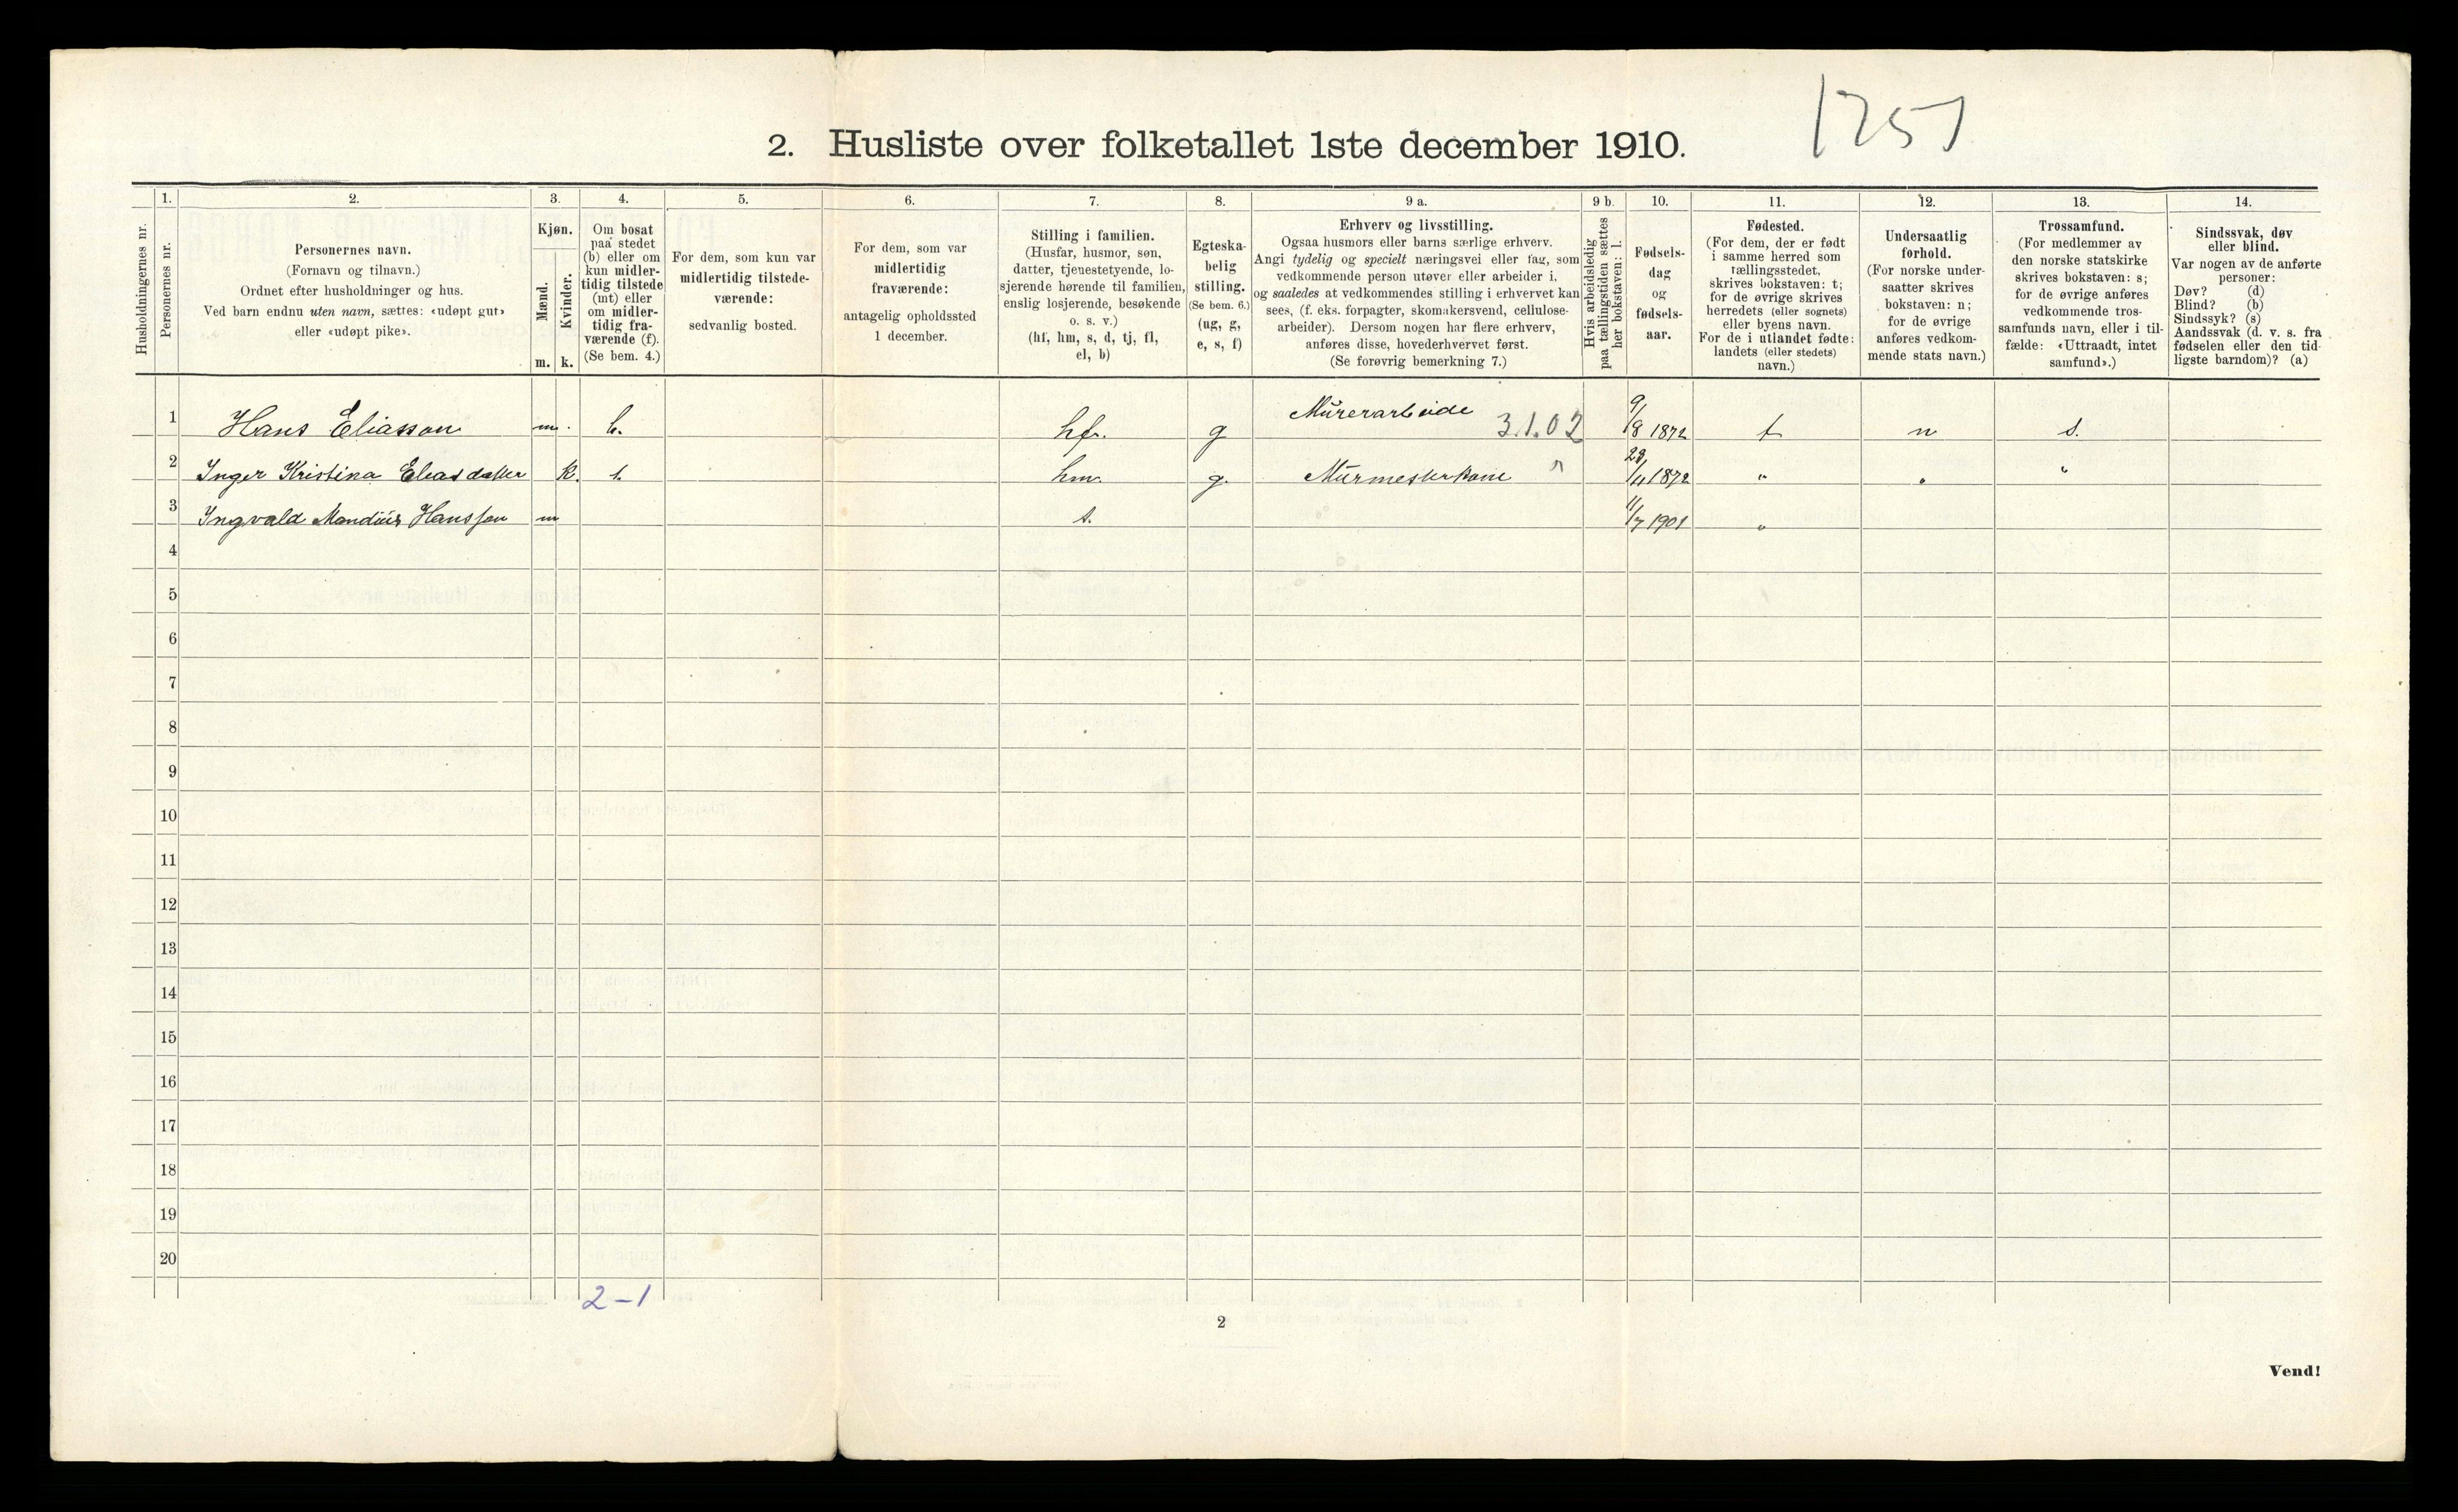 1251
2. Husliste over folketallet 1ste december 1910.
Husholdningernes nr.
1.
Personernes nr.
2.
Personernes navn.
(Fornavn og tilnavn.)
Ordnet efter husholdninger og hus.
Ved barn endnu uten navn, sættes: «udøpt gut»
eller «udøpt pike».
3.
Kjøn.
Mænd.
Kvinder.
m. k.
4.
Om bosat
paa stedet
(b) eller om
kun midler-
tidig tilstede
(mt) eller
om midler-
tidig fra-
værende (f).
(Se bem. 4.)
5.
For dem, som kun var
midlertidig tilstede-
værende:
sedvanlig bosted.
6.
For dem, som var
midlertidig
fraværende:
antagelig opholdssted
1 december.
7.
Stilling i familien.
(Husfar, husmor, søn,
datter, tjenestetyende, lo-
sjerende hørende til familien,
enslig losjerende, besøkende
o. s. v.)
(hf, hm, s, d, tj, fl,
el, b)
8.
Egteska-
belig
stilling.
(Se bem. 6.)
(ug, g,
e, s, f)
9 a.
Erhverv og livsstilling.
Ogsaa husmors eller barns særlige erhverv.
Angi tydelig og specielt næringsvei eller fag, som
vedkommende person utøver eller arbeider i,
og saaledes at vedkommendes stilling i erhvervet kan
sees, (f. eks. forpagter, skomakersvend, cellulose-
arbeider). Dersom nogen har flere erhverv,
anføres disse, hovederhvervet først.
(Se forøvrig bemerkning 7.)
9 b.
Hvis arbeidsledig
paa tællingstiden sættes
her bokstaven: l.
10.
Fødsels-
dag
og
fødsels-
aar.
11.
Fødested.
(For dem, der er født
i samme herred som
tællingsstedet,
skrives bokstaven: t;
for de øvrige skrives
herredets (eller sognets)
eller byens navn.
For de i utlandet fødte:
landets (eller stedets)
navn.)
12.
Undersaatlig
forhold.
(For norske under-
saatter skrives
bokstaven: n;
for de øvrige
anføres vedkom-
mende stats navn.)
13.
Trossamfund.
(For medlemmer av
den norske statskirke
skrives bokstaven: s;
for de øvrige anføres
vedkommende tros-
samfunds navn, eller i til-
fælde: «Uttraadt, intet
samfund».)
14.
Sindssvak, døv
eller blind.
Var nogen av de anførte
personer:
Døv? (d)
Blind? (b)
Sindssyk? (s)
Aandssvak (d. v. s. fra
fødselen eller den tid-
ligste barndom)? (a)
1 Hans Eliasson m. b. hfr. g Mürerarbeide 3.1.02 9/8 1872 t n s.
2 Inger Kristina Eliasdatter k. hm. g. Mürmesterkone 1872 " " "
3 Ingvald Mandius Hansson m s. 11/7 1901 "
4
5
6
7
8
9
10
11
12
13
14
15
16
17
18
19
20
2-1
2
Vend!